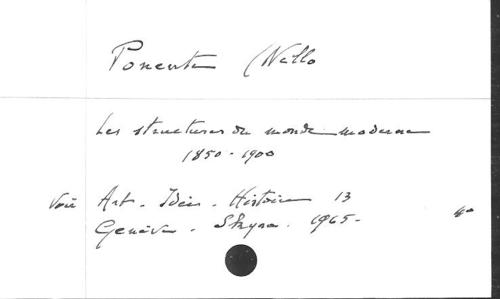 Ponente (Nello
Les structures du monde moderne
1850-1900
Voir Art - Idées - Histoire 13
Genève - Skyra. 1965-
4°